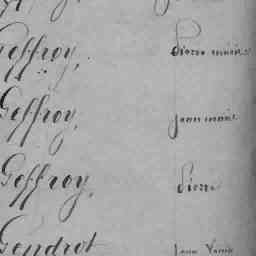 Geffroy, Pierre marie
Geffroy, Jean marie
Geffroy, Pierre
Gendrot Jean